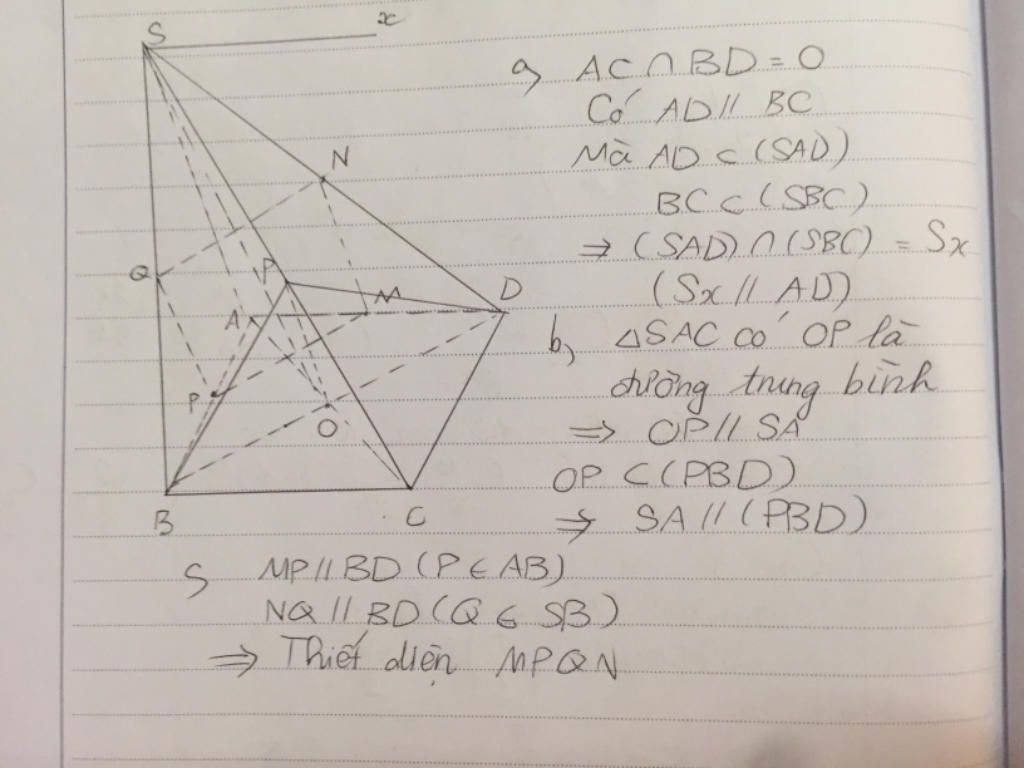 S
x
N
Q
P
M
D
A
P
O
B
C
a, AC ∩ BD = O
Có AD // BC
Mà AD ⊂ (SAD)
BC ⊂ (SBC)
⇒ (SAD) ∩ (SBC) = Sx
(Sx // AD)
b, △SAC có OP là
đường trung bình
⇒ OP // SA
OP ⊂ (PBD)
⇒ SA // (PBD)
MP // BD (P ∈ AB)
NQ // BD (Q ∈ SB)
⇒ Thiết diện MPQN